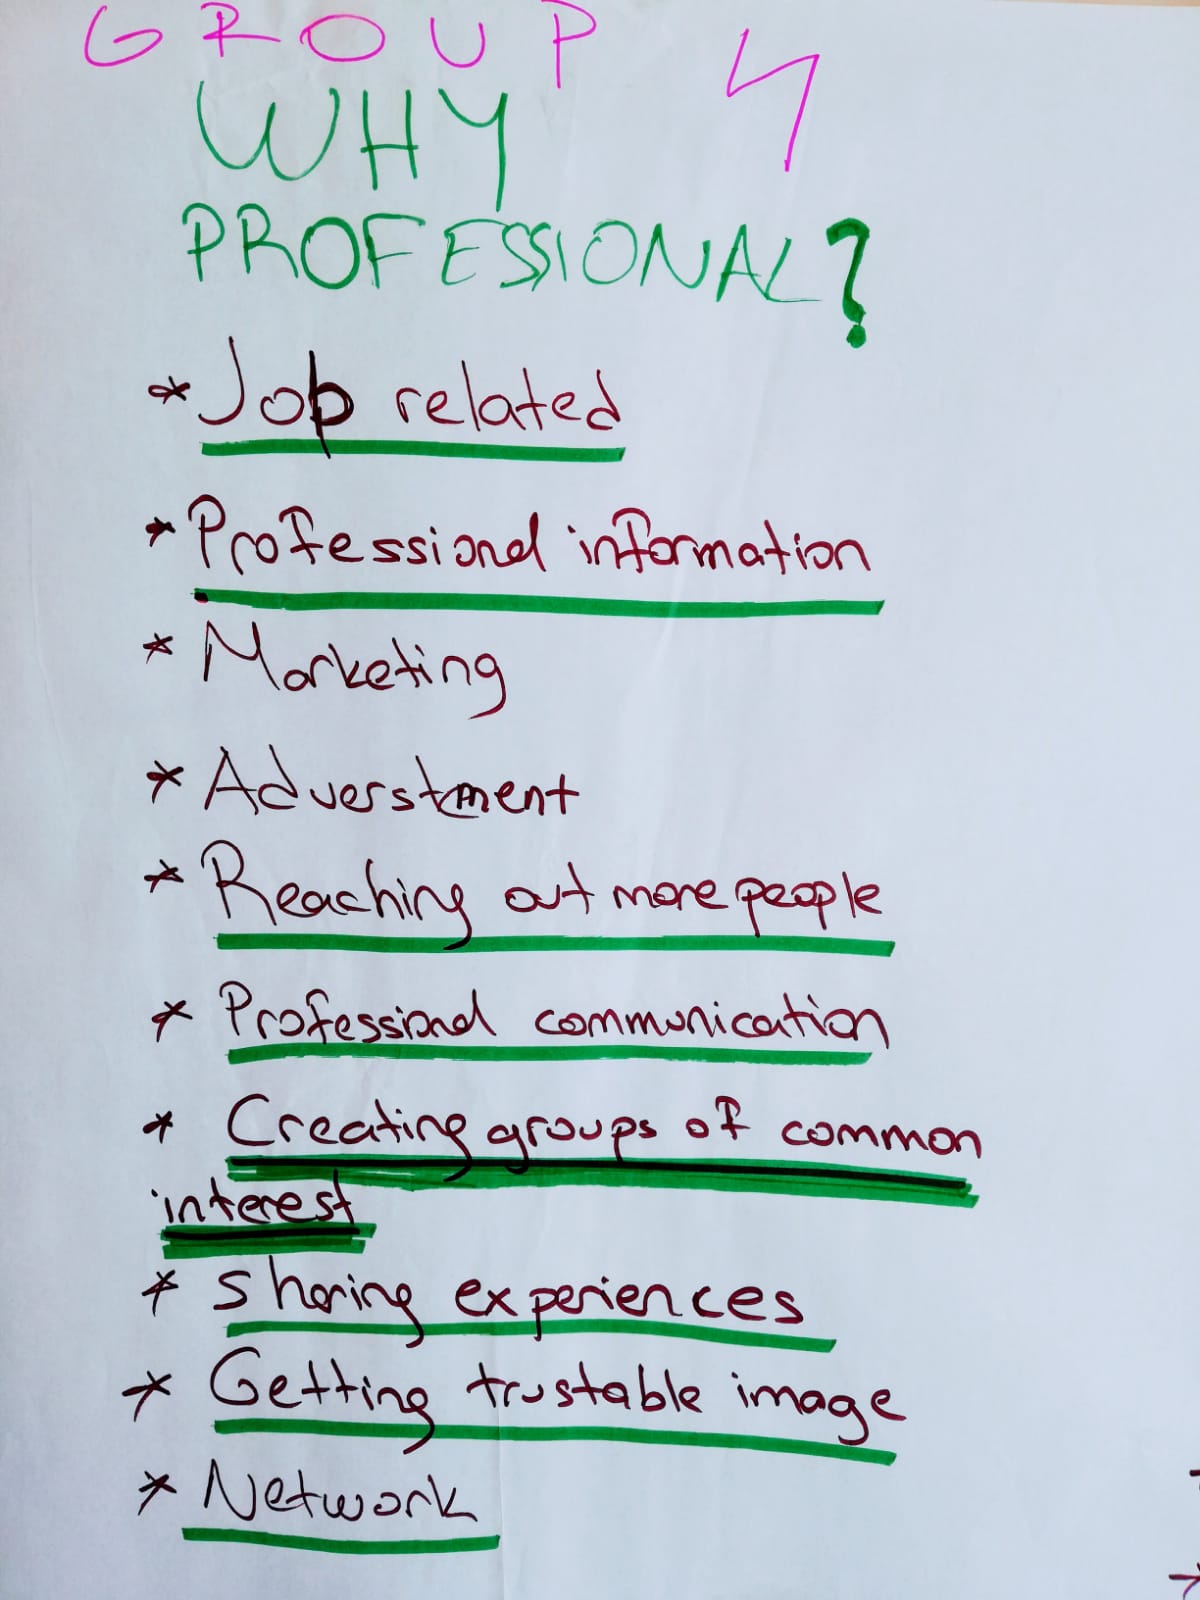 GROUP 4
WHY
PROFESSIONAL?
* Job related
* Professional information
* Marketing
* Adverstment
* Reaching out more people
* Professional communication
* Creating groups of common
interest
* sharing experiences
* Getting trustable image
* Network